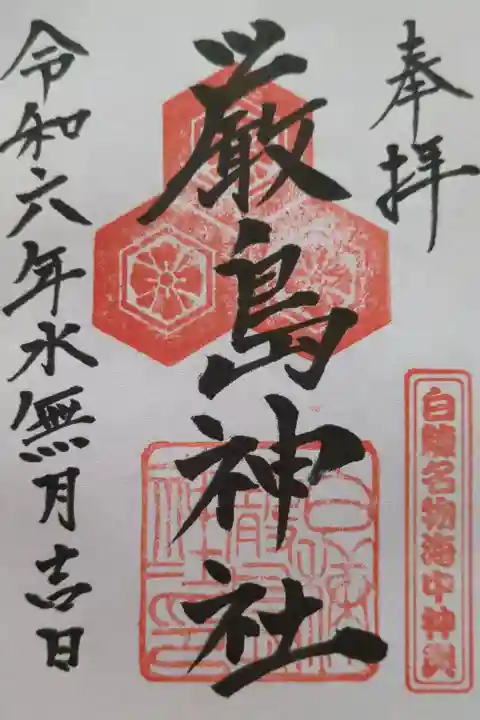 奉拝
白幡名物海中神輿
厳島神社
令和六年水無月吉日